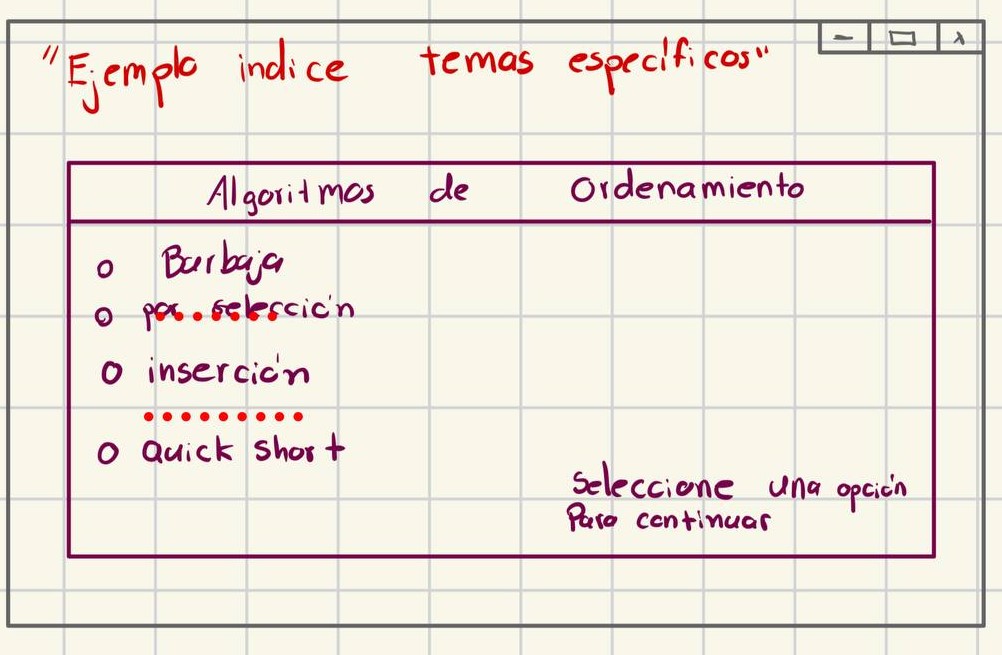 "Ejemplo indice temas específicos"
Algoritmos de Ordenamiento
Burbaja
por selección
inserción
Quick Short
Seleccione una opción
Para continuar